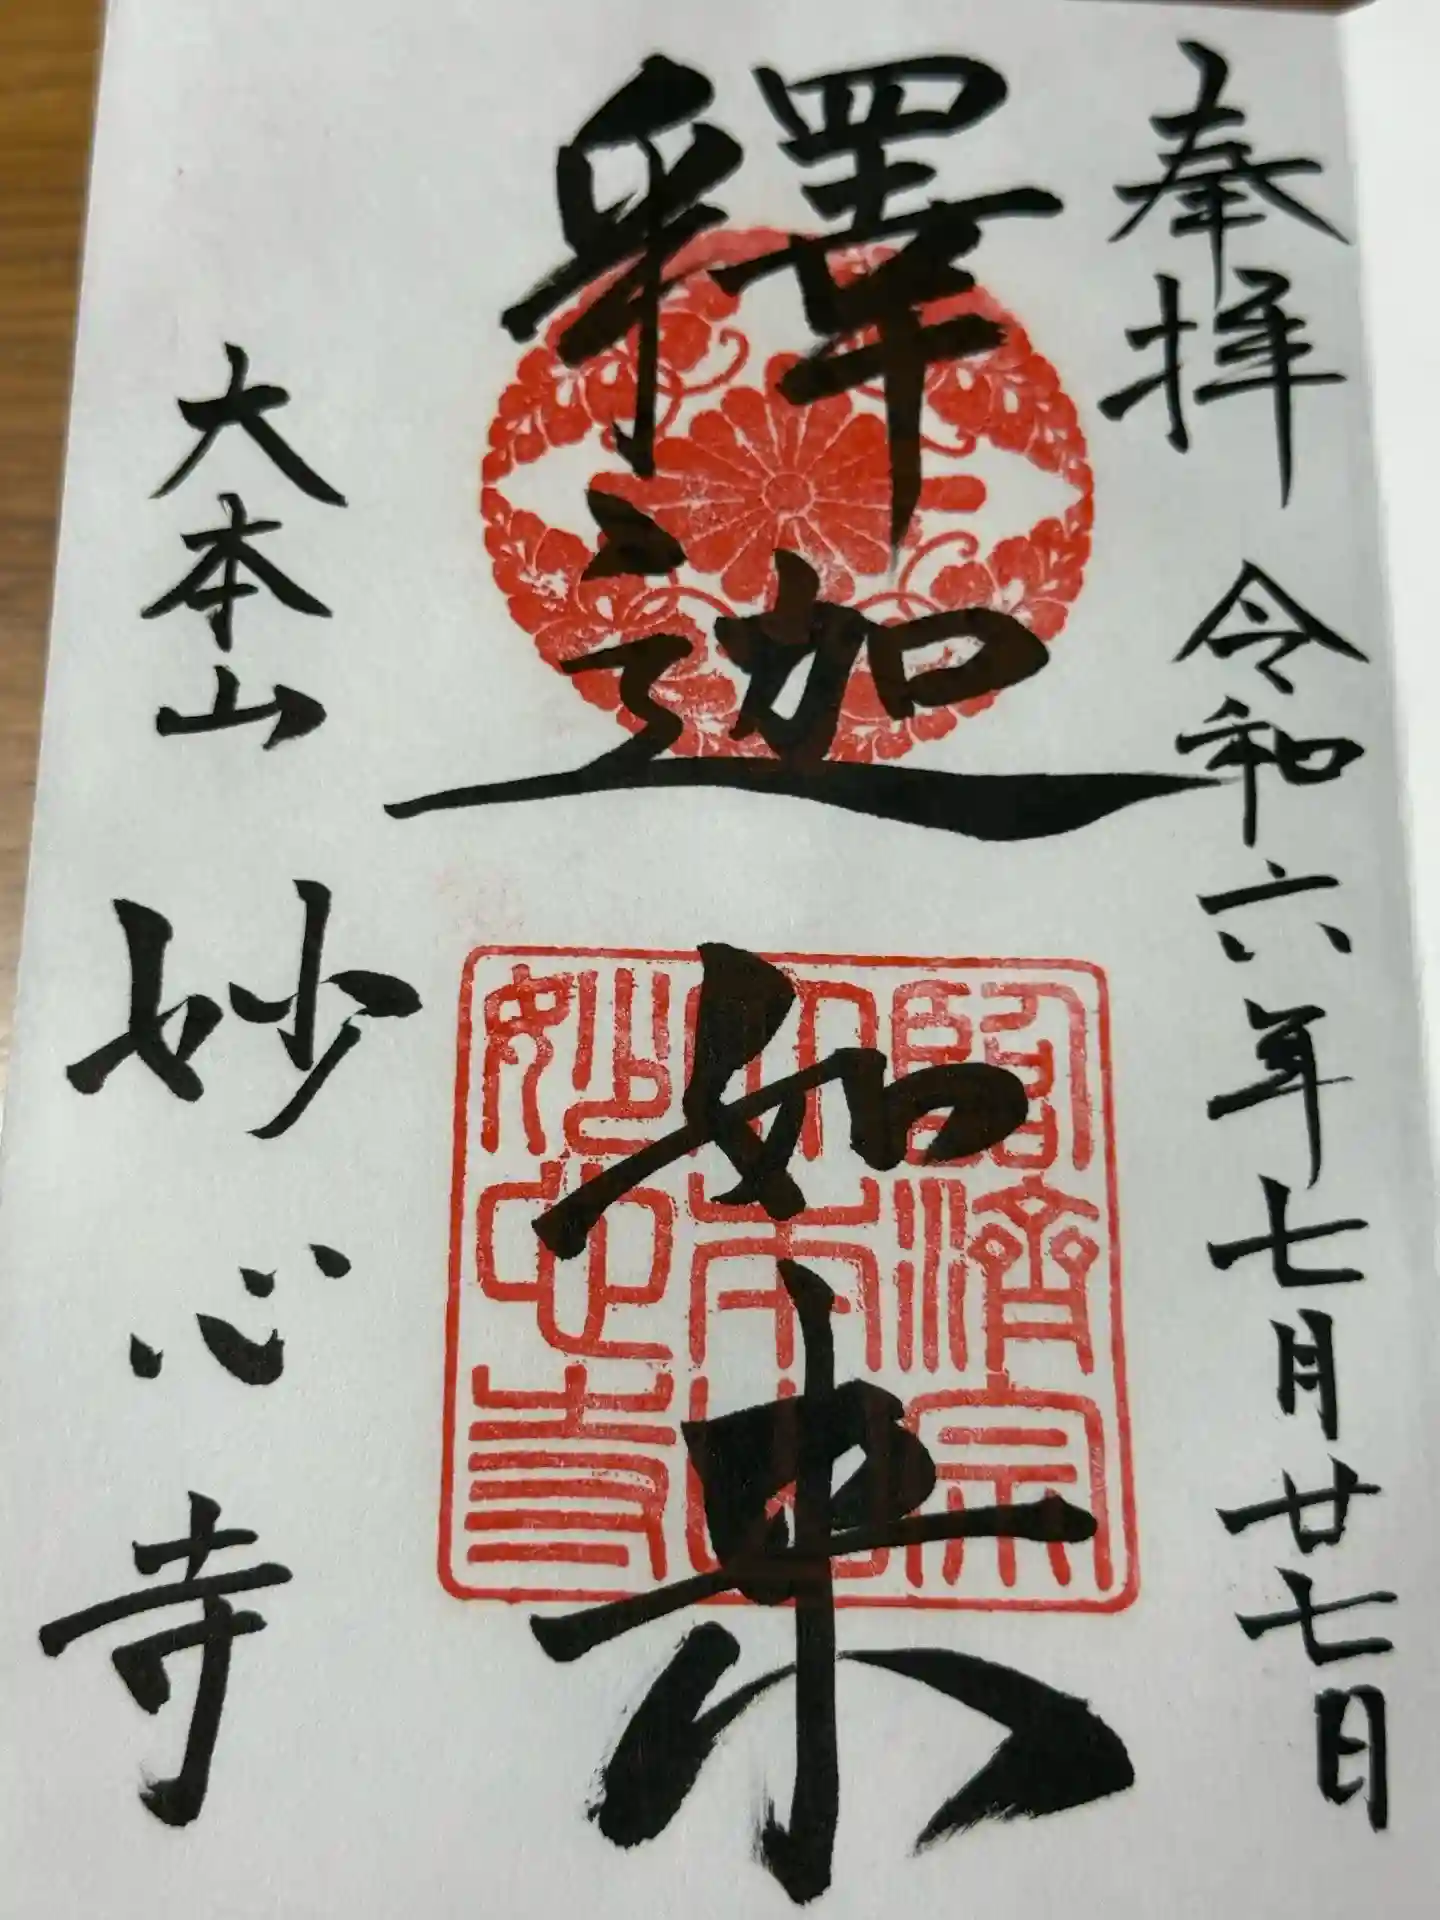 奉拝 令和六年七月廿七日
釋迦如来
臨済宗
大本山
妙心寺
大本山 妙心寺